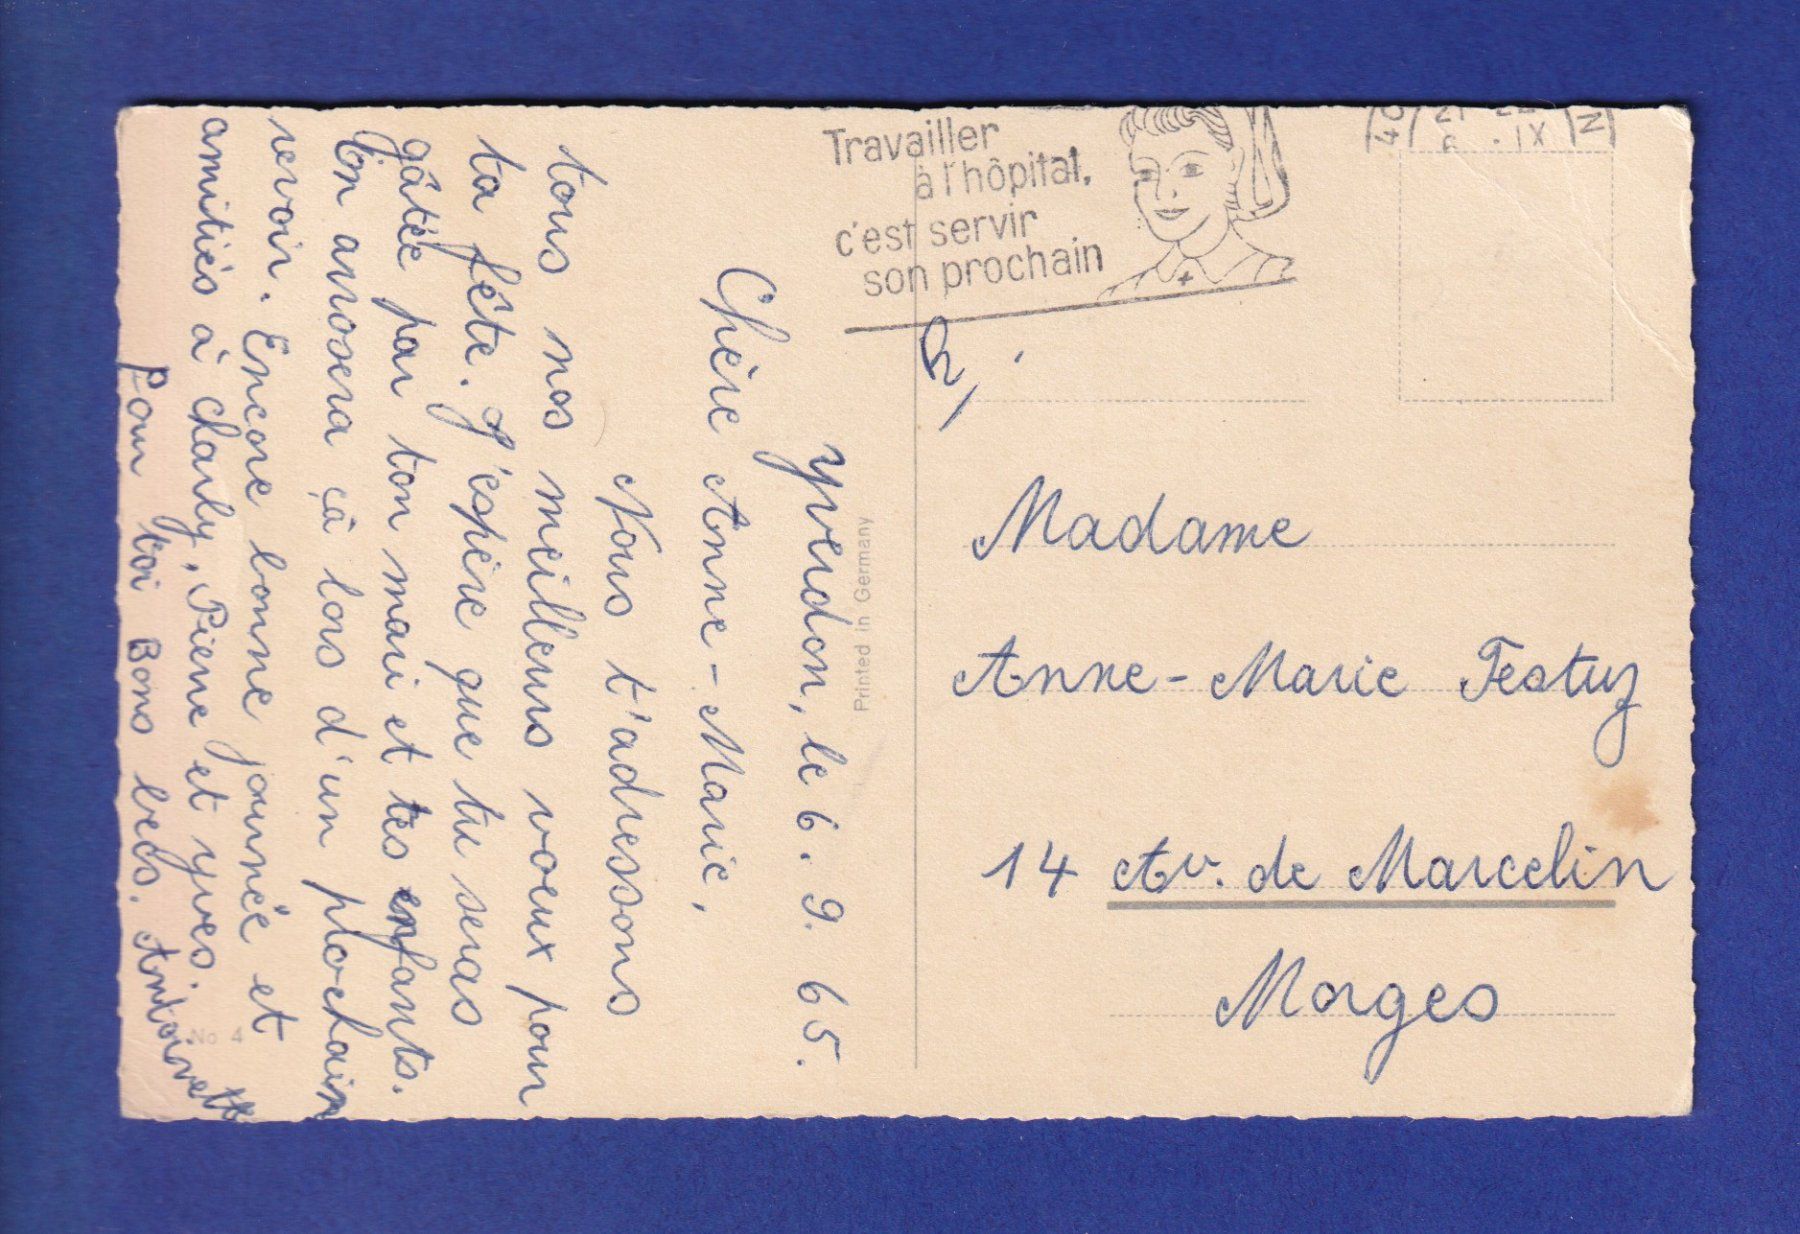 Yverdon, le 6. 9. 65.
Chère Anne-Marie,
Nous t'adressons
tous nos meilleurs voeux pour
ta fête. J'espère que tu seras
gâtée par ton mari et tes enfants.
J'on arrosera çà lors d'un prochain
revoir. Encore bonne journée et
amitiés à Charly, Pierre et Yves.
Pour toi Bons becs. Antoinette
No 4
Printed in Germany
Travailler
à l'hôpital,
c'est servir
son prochain
21
6 . IX
Madame
Anne-Marie Festuz
14 Av. de Marcelin
Morges